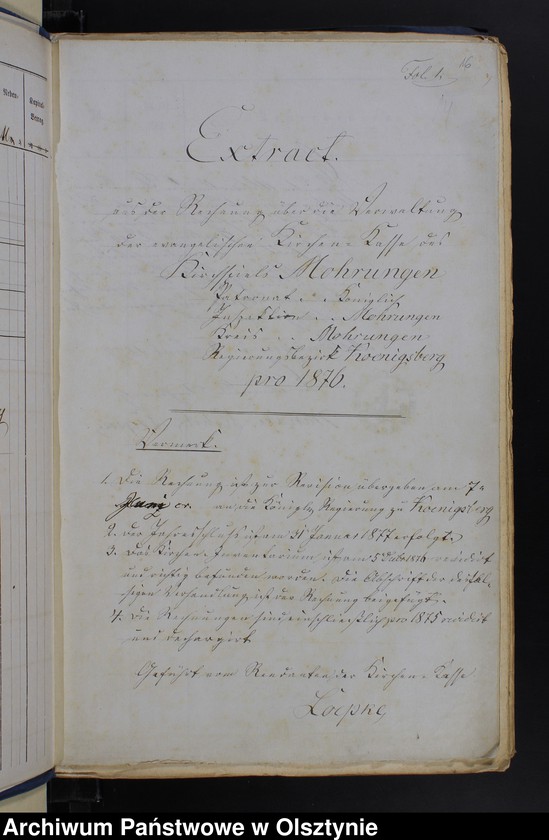 Neben-
Capital-
Betrag
16
Fol. 1.
Extract.
aus der Rechnung über die Verwaltung
der evangelischen Kirchen-Kasse des
Kirchspiels Mohrungen
Patronat .. Königlich
Inspektion .. Mohrungen
Kreis .. Mohrungen
Regierungsbezirk Koenigsberg
pro 1876.
Vermerk.
1. Die Rechnung ist zur Revision übergeben am 7n
Juni cr. an die Königl. Regierung zu Koenigsberg
2. Der Jahresschluß ist am 31 Januar 1877 erfolgt.
3. Das Kirchen-Inventarium ist am 5 1876 revidirt
und richtig befunden worden. Die Abschrift der desfal-
sigen Verhandlung ist der Rechnung beigefügt.
4. Die Rechnungen sind einschließlich pro 1875 revidirt
und dechargirt.
Geführt vom Rendanten der Kirchen-Kasse
Loepke
Archiwum Państwowe w Olsztynie